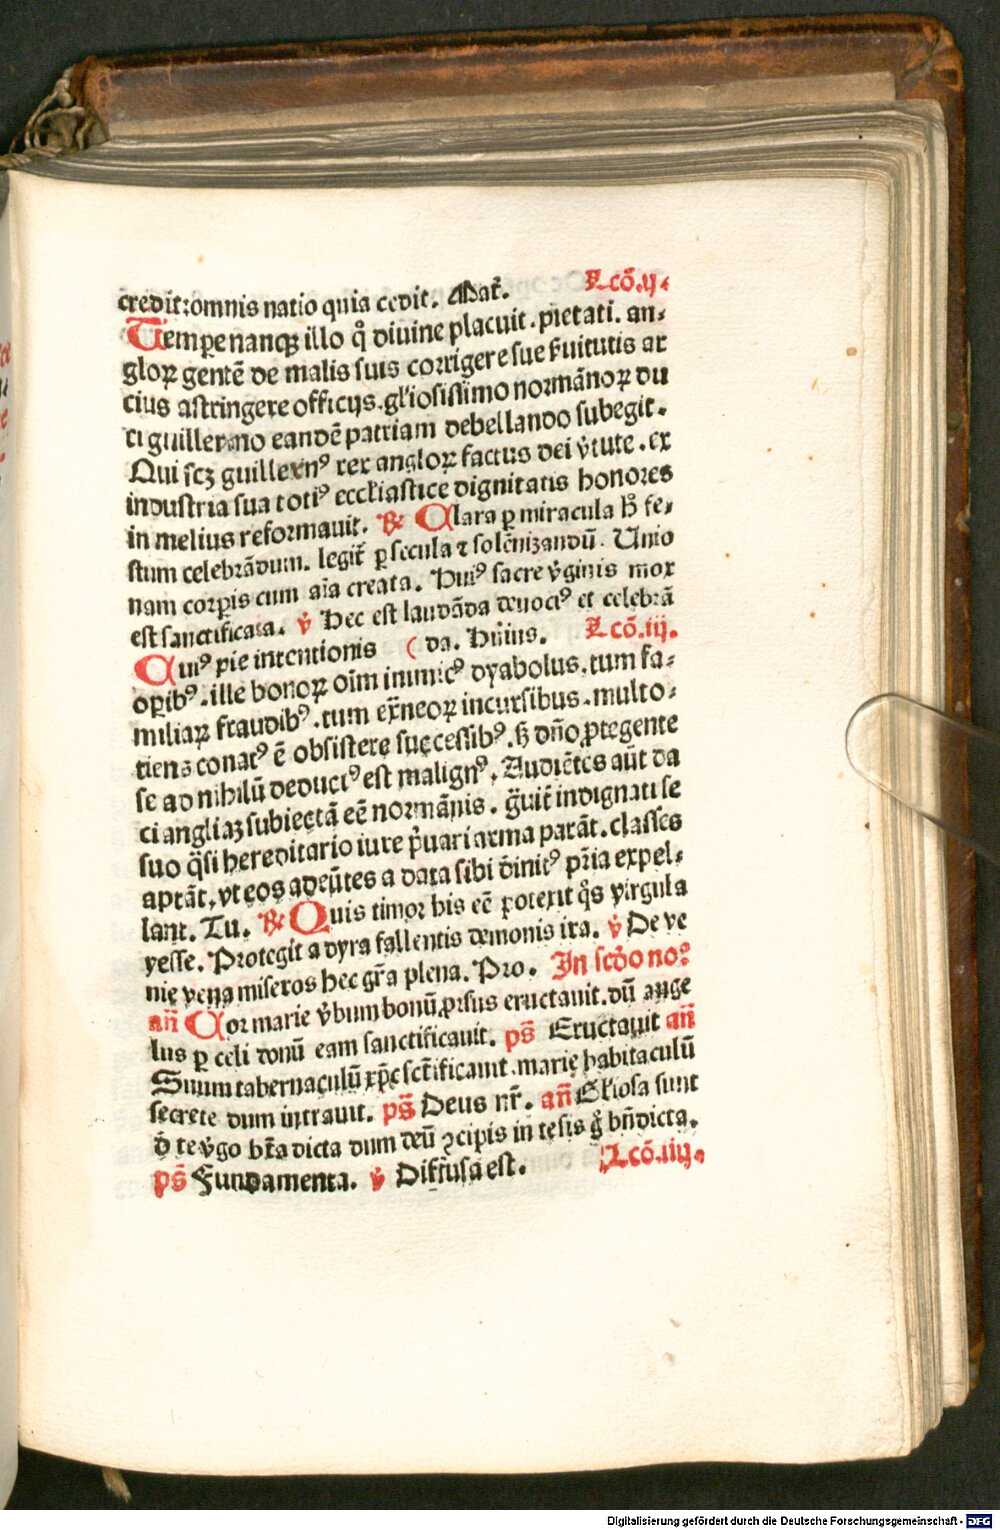 credit: omnis natio quia cedit. Mat̃. Lcõ.ij.
Tempe nanqꝫ illo q̊ diuine placuit. pietati. an-
gloꝝ gentẽ de malis suis corrigere sue ẜuitutis ar
cius astringere officijs. gl̃iosissimo normãnoꝝ du
ci guillermo eandẽ patriam debellando subegit.
Qui scꝫ guillermꝰ rex angloꝝ factus dei v̾tute. ex
industria sua totiꝰ eccl̃iastice dignitatis honores
in melius reformauit. ℞ Clara ꝑ miracula h̊ fe-
stum celebrãdum. legit̃ ꝑ secula ⁊ solẽnizandũ. Unio
nam corꝑis cum aĩa creata. Huiꝰ sacre v̾ginis mox
est sanctificata. ℣ Hec est laudãda deuociꝰ et celebrã
Cuiꝰ pie intentionis ( da. Huĩus. Lcõ.iij.
oꝑibꝰ. ille bonoꝝ oĩm inimicꝰ dyabolus. tum fa-
miliaꝝ fraudibꝰ. tum ex̃neoꝝ incursibus. multo-
tiens conatꝰ ẽ obsistere successibꝰ. ꝫ dño ꝓtegente
se ad nihilũ deductꝰ est malignꝰ. Audiẽtes aũt da
ci angliaꝫ subiectã eẽ normãnis. g̃uit̃ indignati se
suo q̃si hereditario iure p̃uari arma parãt. classes
aptãt, vt eos adeũtes a data sibi diuinitꝰ pr̃ia expel-
lant. Tu. ℞ Quis timor his eẽ poterit q̊s virgula
yesse. Protegit a dyra fallentis demonis ira. ℣ De ve
nie vena miseros hec gr̃a plena. Pro. In scd̃o noº
añ Cor marie v̾bum bonũ ꝓrsus eructauit. dũ ange
lus ꝑ celi donũ eam sanctificauit. ps̃ Eructauit añ
Suum tabernaculũ xp̃ę sct̃ificauit. marię habitaculũ
secrete dum intrauit. ps̃ Deus nr̃. añ Gl̃iosa sunt
d̾ te v̾go bt̃a dicta dum deũ ꝯcipis in tesis g̊ bñdicta.
ps̃ Fundamenta. ℣ Diffusa est. Lcõ.iiij.
Digitalisierung gefördert durch die Deutsche Forschungsgemeinschaft - DFG